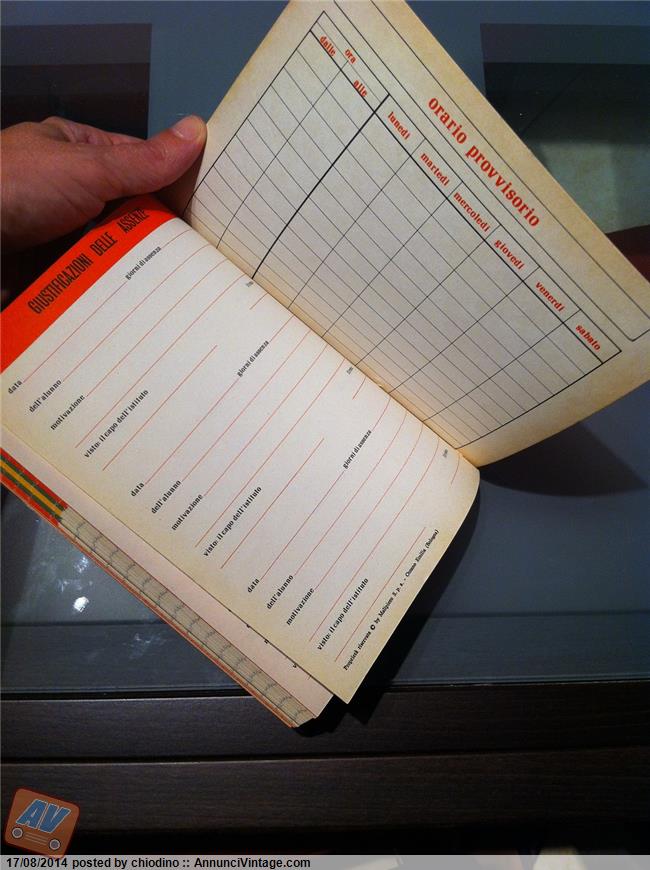 orario provvisorio
ora
dalle
alle
lunedì
martedì
mercoledì
giovedì
venerdì
sabato
GIUSTIFICAZIONI DELLE ASSENZE
giorni di assenza
data
dell'alunno
motivazione
visto: il capo dell'istituto
giorni di assenza
data
dell'alunno
motivazione
visto: il capo dell'istituto
giorni di assenza
data
dell'alunno
motivazione
visto: il capo dell'istituto
Proprietà riservata © by Malipiero S. p. A. - Ozzano Emilia (Bologna)
AV
17/08/2014 posted by chiodino :: AnnunciVintage.com